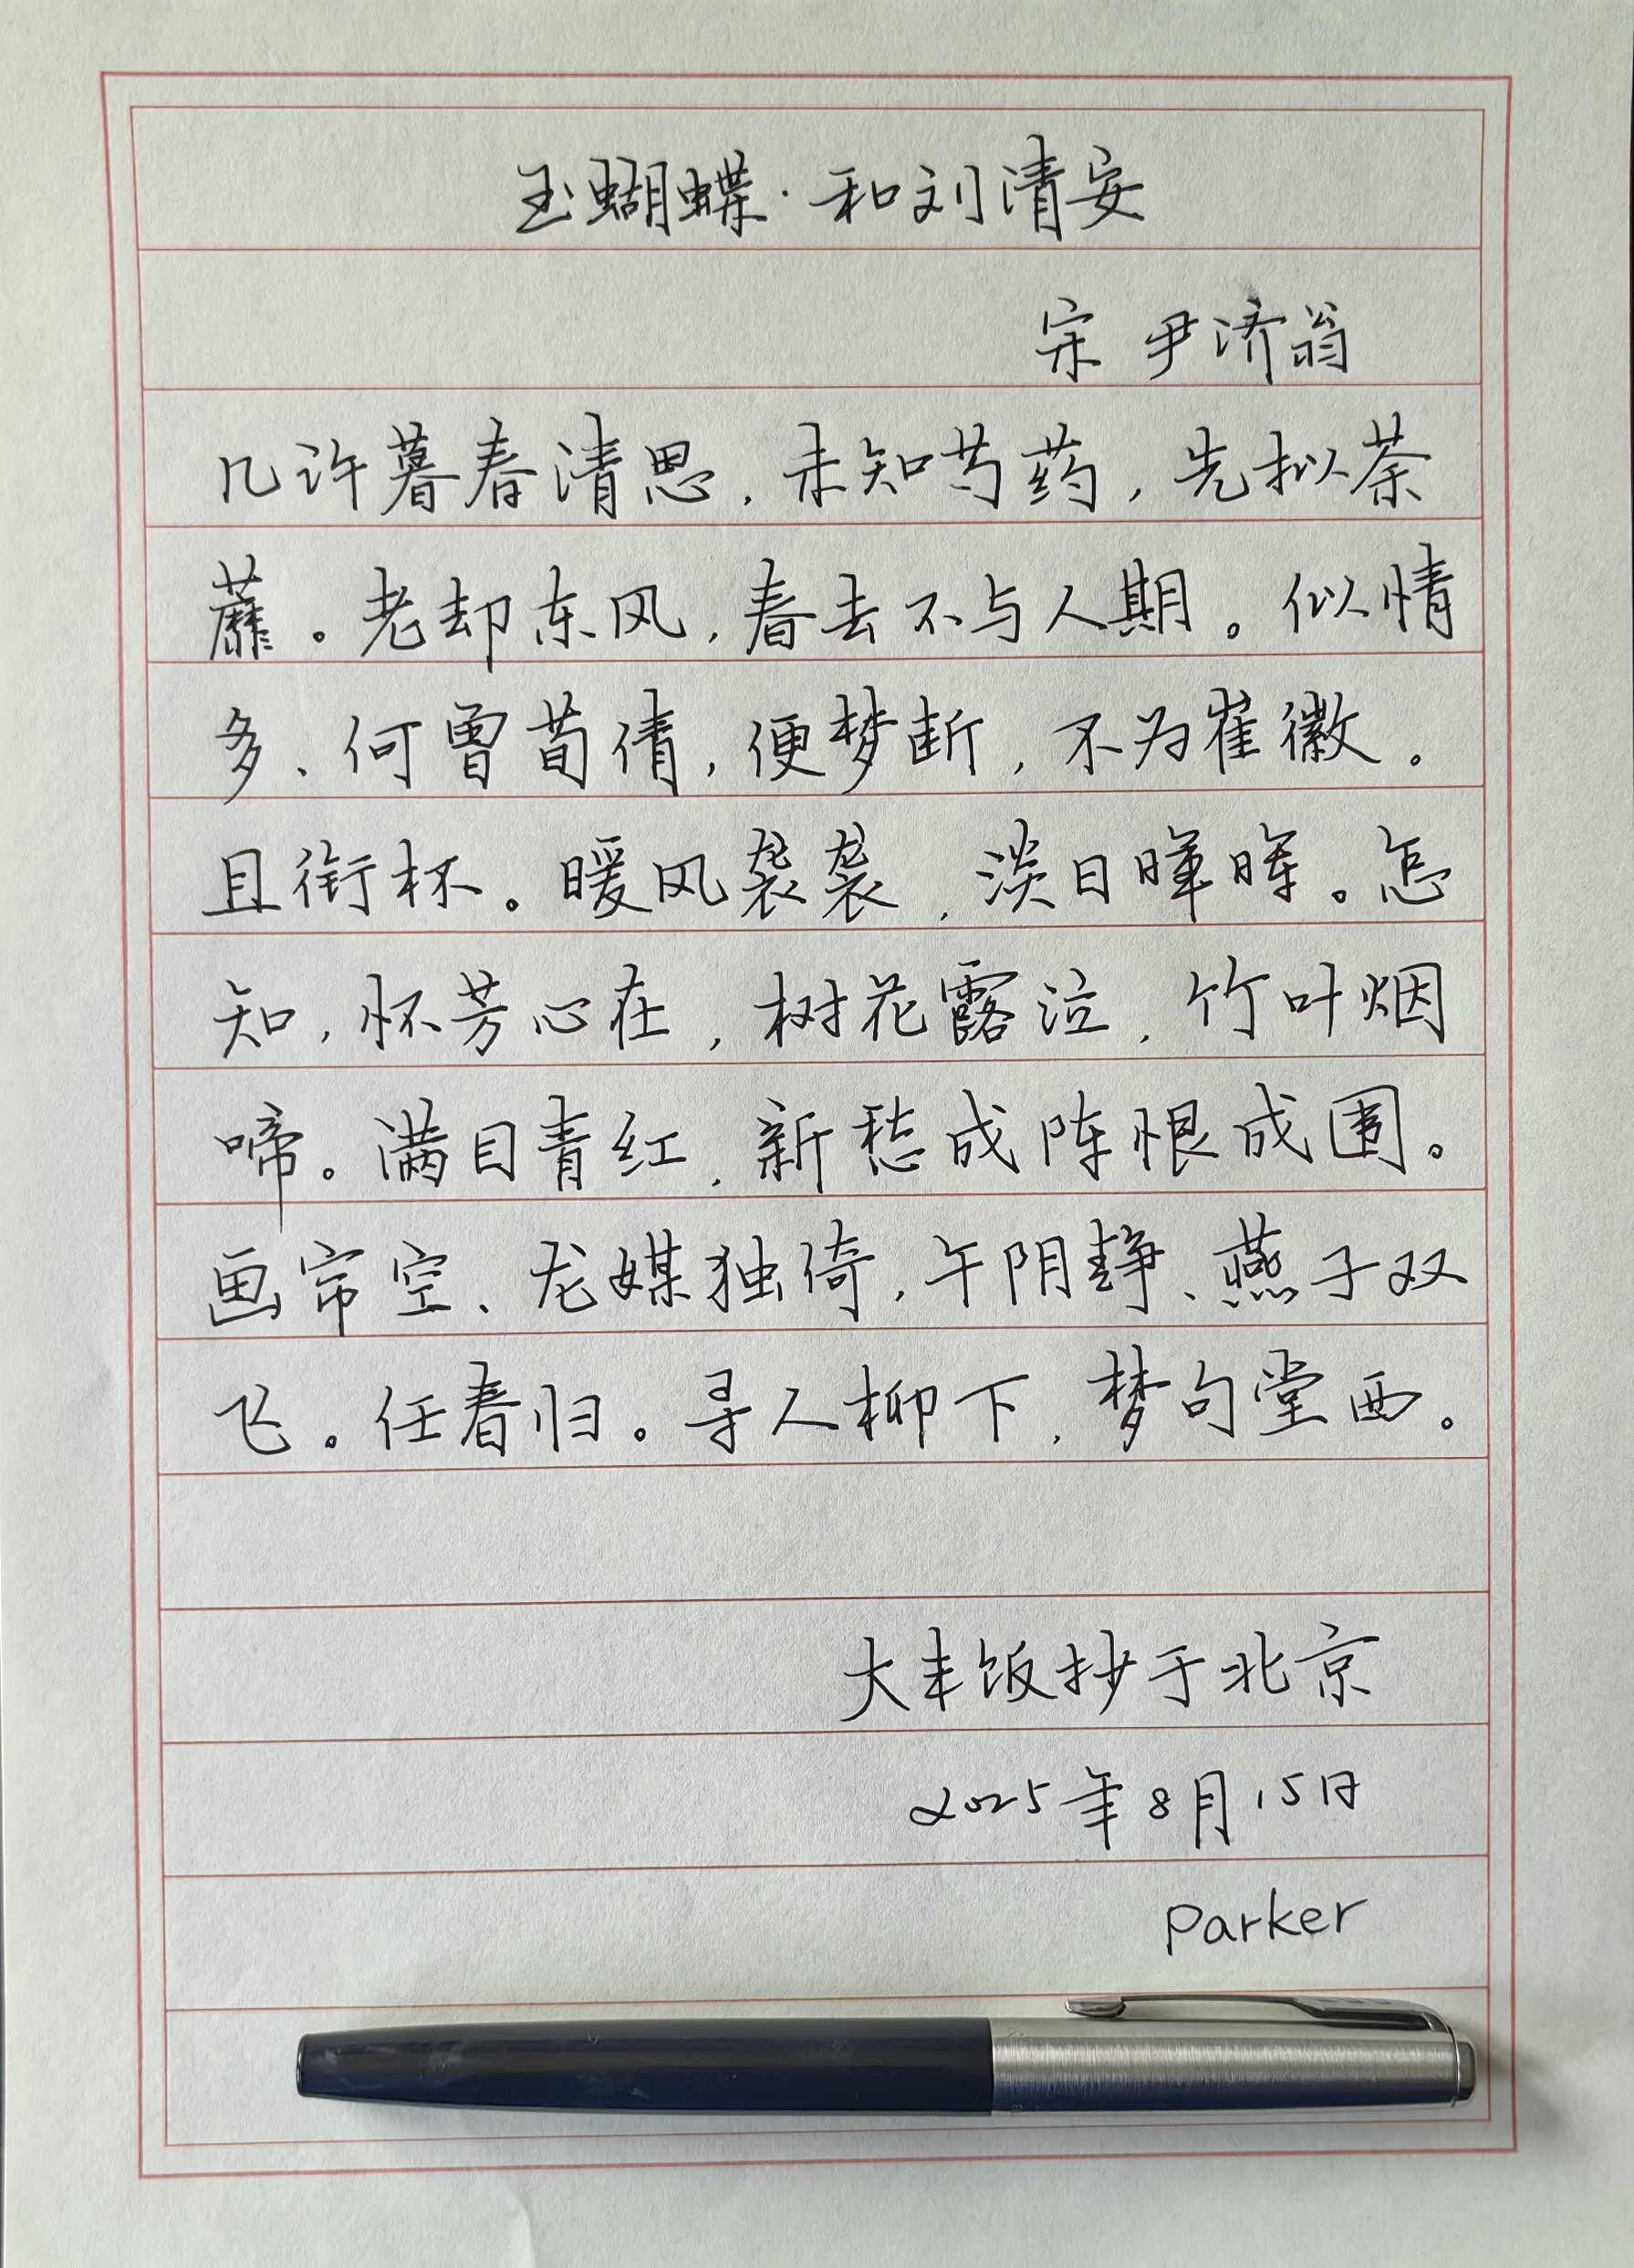 玉蝴蝶·和刘清安
宋 尹济翁
几许暮春清思，未知芍药，先拟荼
蘼。老却东风，春去不与人期。似情
多、何曾荀倩，便梦断，不为崔徽。
且衔杯。暖风袭袭，淡日晖晖。怎
知，怀芳心在，树花露泣，竹叶烟
啼。满目青红，新愁成阵恨成围。
画帘空、龙媒独倚，午阴静、燕子双
飞。任春归。寻人柳下，梦句堂西。
大丰饭抄于北京
2025年8月15日
Parker